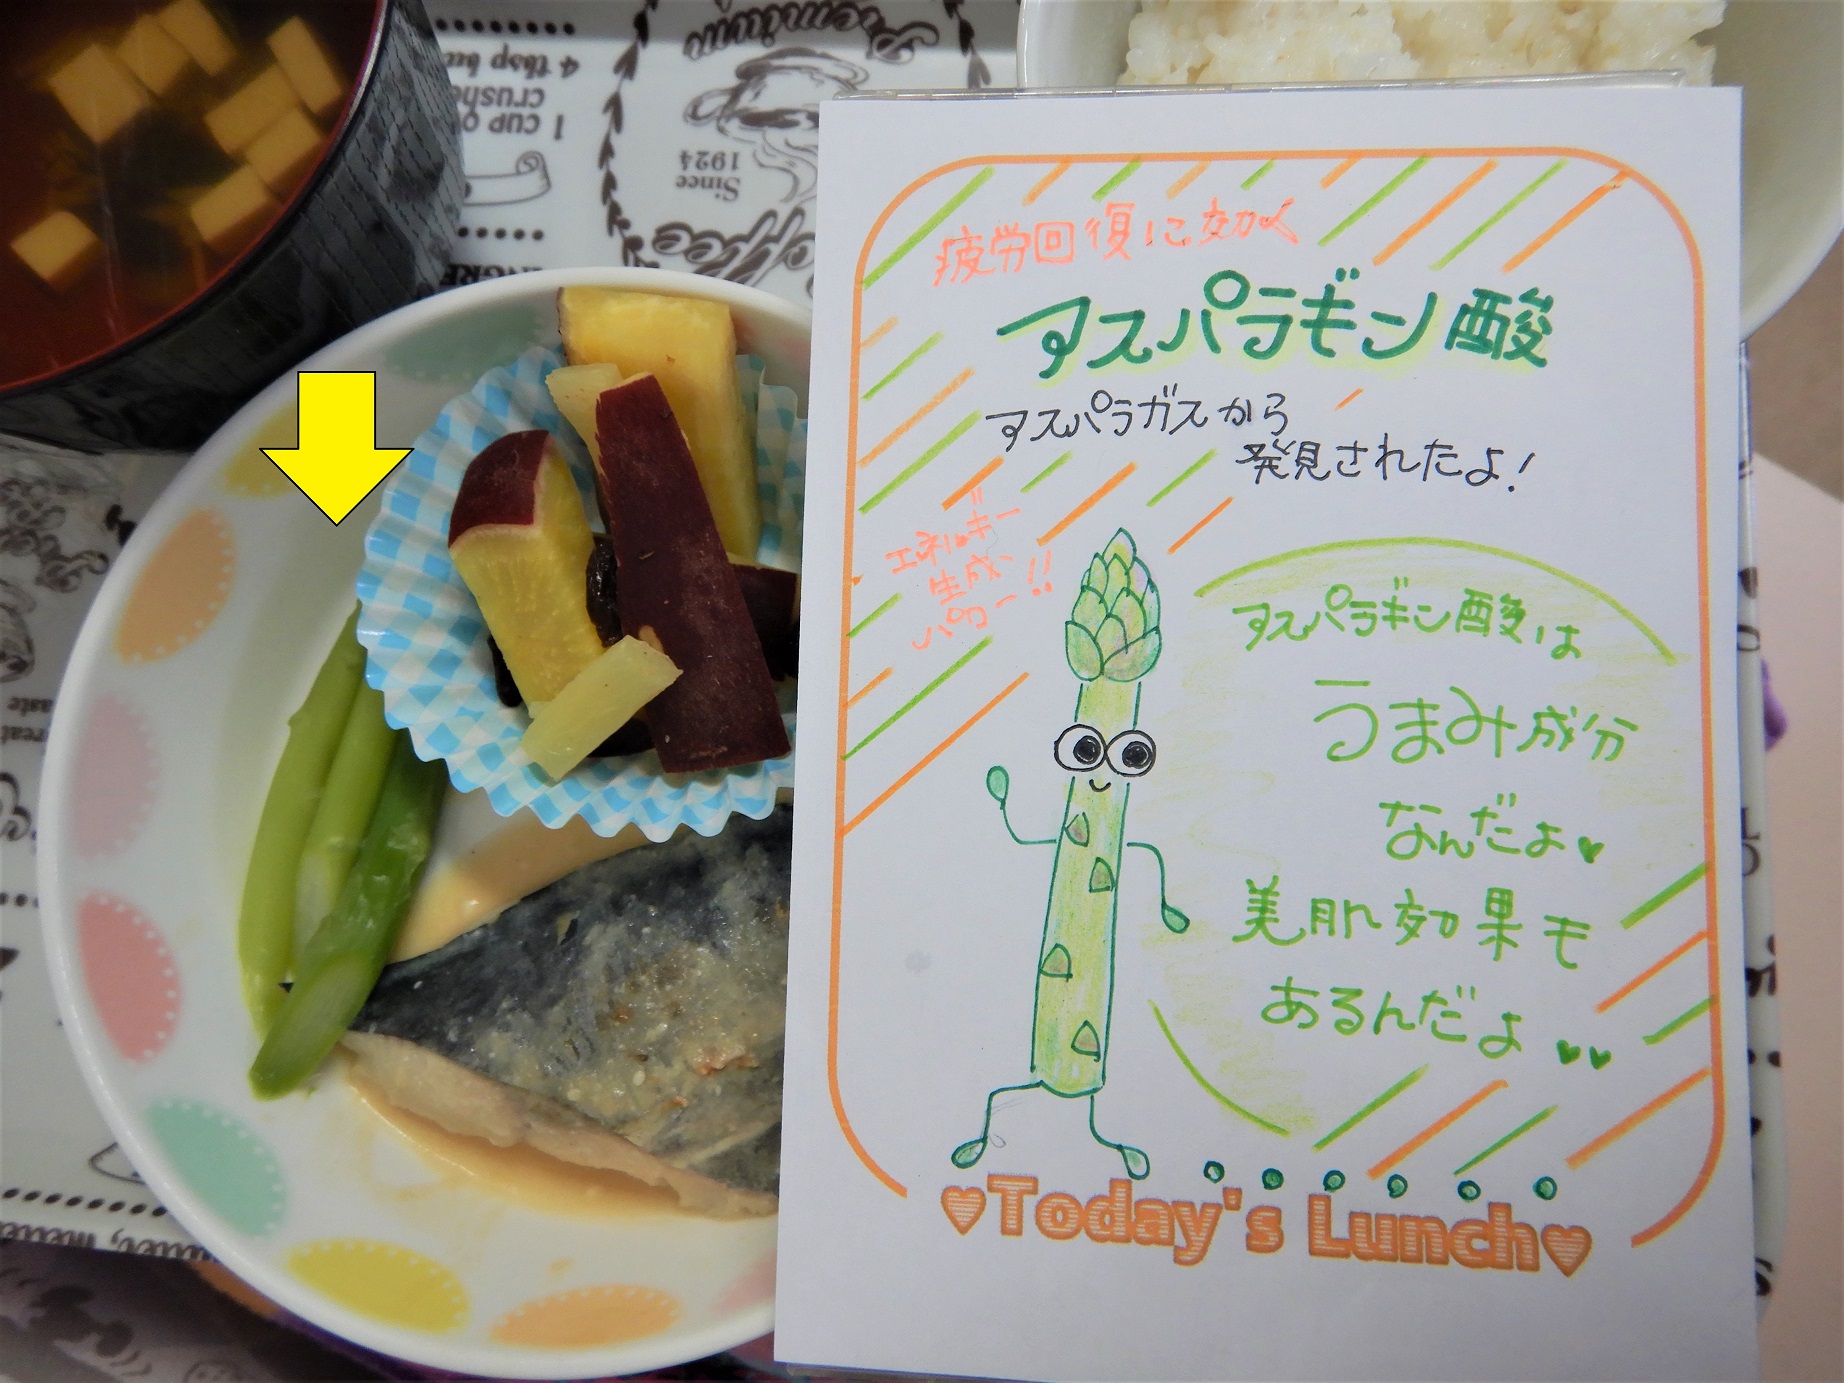 疲労回復に効く
アスパラギン酸
アスパラガスから
発見されたよ!
エネルギー
生成
パワー!!
アスパラギン酸は
うまみ成分
なんだよ♥
美肌効果も
あるんだよ♥♥
♥Today's Lunch♥
Premium
Since
1924
Coffee
1 cup
crushe
4 tbsp